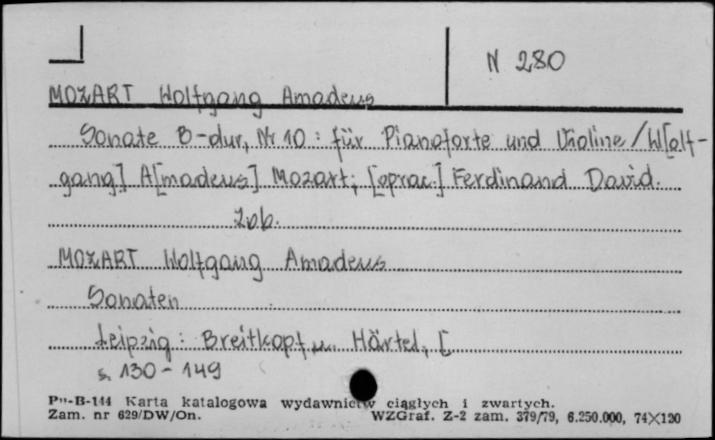 N 280
MOZART Wolfgang Amadeus
Sonate B-dur, Nr 10 : für Pianoforte und Violine / W[olf-
gang] A[madeus] Mozart; [oprac.] Ferdinand David.
Zob.
MOZART Wolfgang Amadeus
Sonaten
Leipzig : Breitkopf u. Härtel, [
s. 130 - 149
-B-144 Karta katalogowa wydawnictw ciągłych i zwartych.
Zam. nr 629/DW/On. WZGraf. Z-2 zam. 379/79, 6.250.000, 74×120